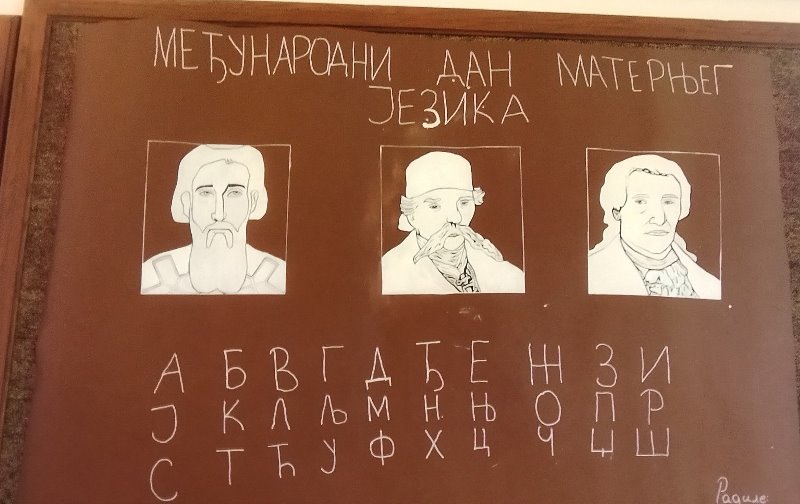 МЕЂУНАРОДНИ ДАН МАТЕРЊЕГ
ЈЕЗИКА
А Б В Г Д Ђ Е Ж З И
Ј К Л Љ М Н Њ О П Р
С Т Ћ У Ф Х Ц Ч Џ Ш
Радиле: